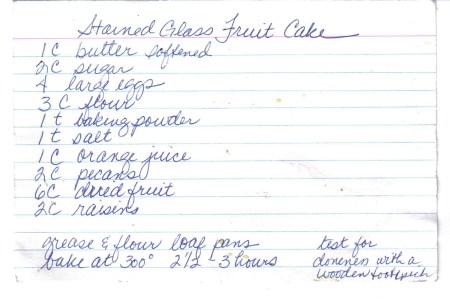 Stained Glass Fruit Cake
1 C butter softened
2 C sugar
4 large eggs
3 C flour
1 t baking powder
1 t salt
1 C orange juice
2 C pecans
6C dried fruit
2C raisins
grease & flour loaf pans
bake at 300° 2 1/2 - 3 hours
test for
doneness with a
wooden toothpick